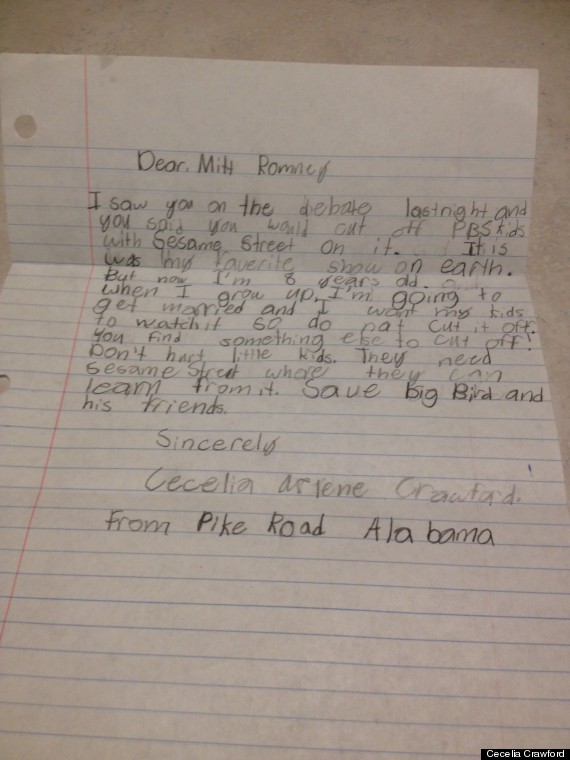 Dear. Mitt Romney
I saw you on the debate lastnight and
you said you would cut off PBS kids
with Sesame Street on it. It is
was my faverite show on earth.
But now I'm 8 years old.
when I grow up, I'm going to
get married and I want my kids
to watch it so do not cut it off.
You find something else to cut off!
Don't hurt little kids. They need
Sesame Street where they can
learn from it. Save Big Bird and
his friends.
Sincerely
Cecelia Arlene Crawford.
From Pike Road Alabama
Cecelia Crawford